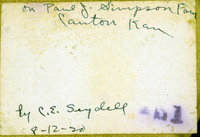 on Paul J. Simpson Farm
Canton Kan
by C. E. Seydell
8-12-20